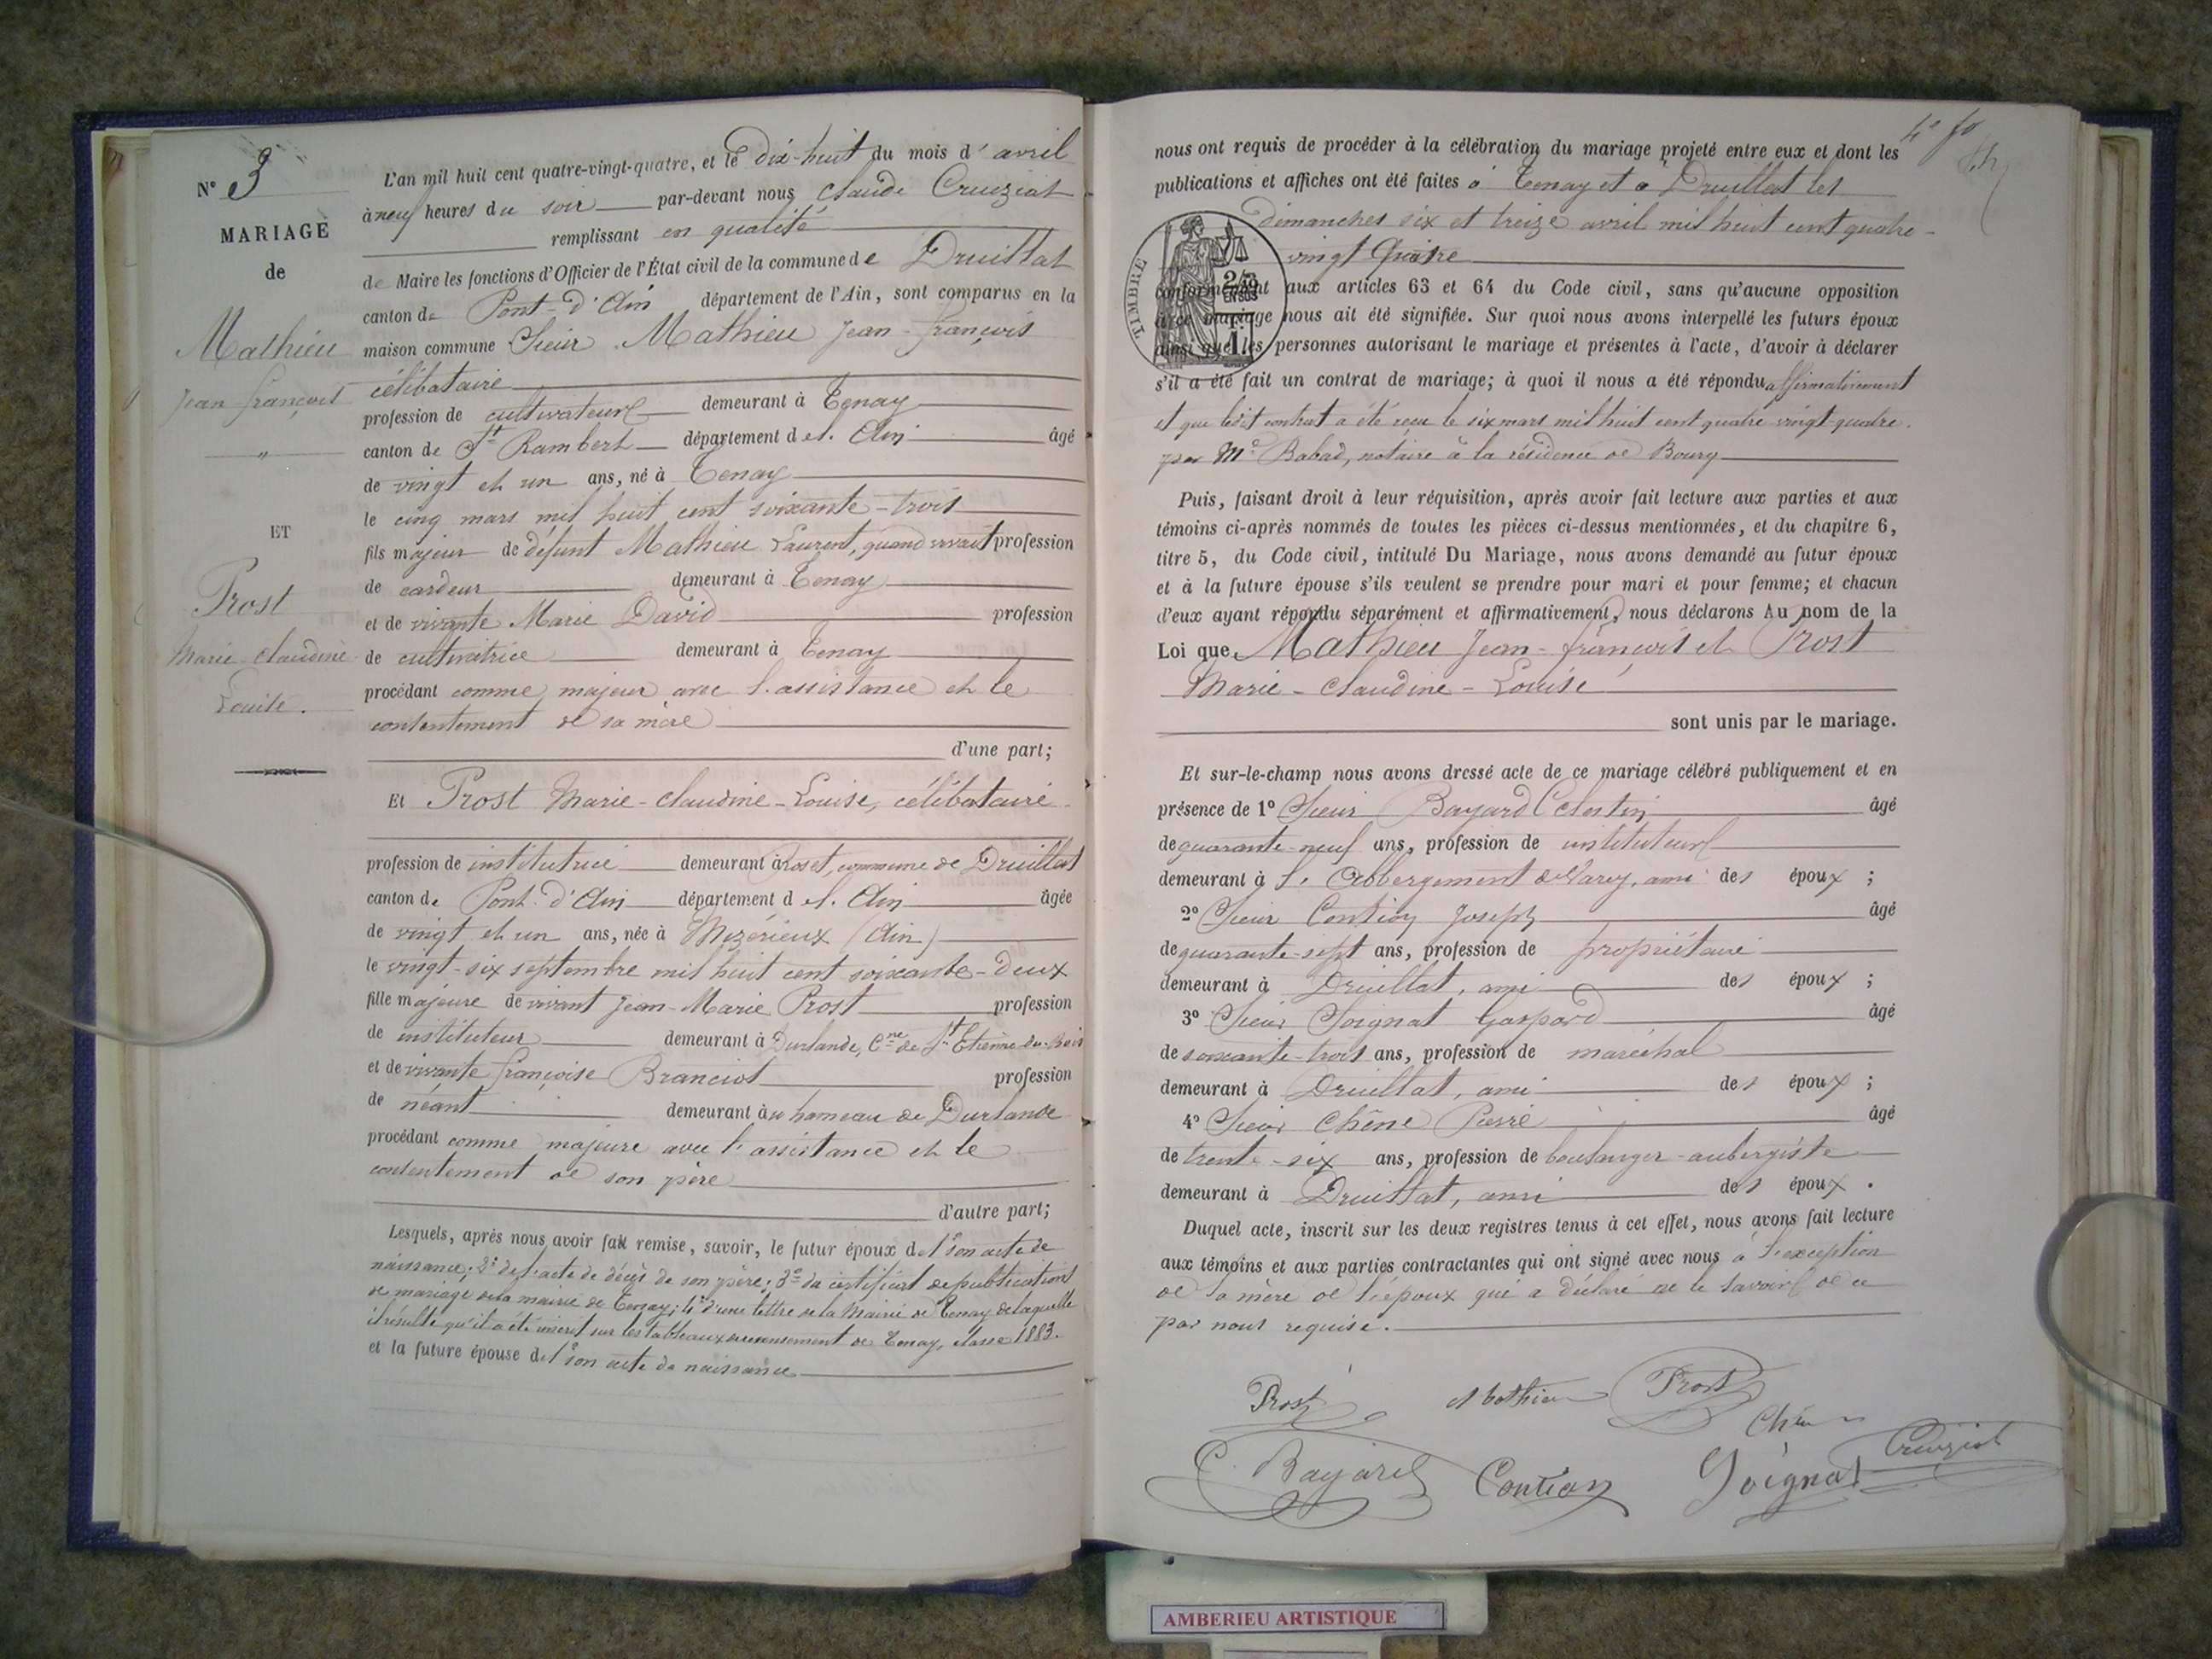 N° 3
MARIAGE
de
Mathieu
Jean-françois
"
ET
Prost
Marie-claudine
Louise.
L'an mil huit cent quatre-vingt-quatre, et le dix-huit du mois d'avril
à neuf heures du soir par-devant nous Claude Cruiziat
remplissant en qualité
de Maire les fonctions d'Officier de l'État civil de la commune de Druillat
canton de Pont-d'Ain département de l'Ain, sont comparus en la
maison commune Sieur Mathieu Jean-françois
célibataire
profession de cultivateur demeurant à Tenay
canton de St Rambert département de l'Ain âgé
de vingt et un ans, né à Tenay
le cinq mars mil huit cent soixante-trois
fils majeur de défunt Mathieu Laurent, quand vivait profession
de cardeur demeurant à Tenay
et de vivante Marie David profession
de cultivatrice demeurant à Tenay
procédant comme majeur avec l'assistance et le
consentement de sa mère
d'une part;
Et Prost Marie-claudine-Louise, célibataire
profession de institutrice demeurant à Roset, commune de Druillat
canton de Pont-d'Ain département de l'Ain âgée
de vingt et un ans, née à Mizérieux (Ain)
le vingt-six septembre mil huit cent soixante-deux
fille majeure de vivant Jean-Marie Prost profession
de instituteur demeurant à Durlande, Cne de St Etienne-du-Bois
et de vivante françoise Branciot profession
de néant demeurant au hameau de Durlande
procédant comme majeure avec l'assistance et le
consentement de son père
d'autre part;
Lesquels, après nous avoir fait remise, savoir, le futur époux de 1° son acte de
naissance; 2° de l'acte de décès de son père; 3° du certificat de publications
de mariage de la mairie de Tenay; 4° d'une lettre de la Mairie de Tenay de laquelle
il résulte qu'il a été inscrit sur les tableaux de recensement de Tenay, classe 1883.
et la future épouse de 1° son acte de naissance
4e fo
nous ont requis de procéder à la célébration du mariage projeté entre eux et dont les
publications et affiches ont été faites à Tenay et à Druillat les
dimanches six et treize avril mil huit cent quatre-
vingt Quatre
TIMBRE
conformément aux articles 63 et 64 du Code civil, sans qu'aucune opposition
à ce mariage nous ait été signifiée. Sur quoi nous avons interpellé les futurs époux
ainsi que les personnes autorisant le mariage et présentes à l'acte, d'avoir à déclarer
s'il a été fait un contrat de mariage; à quoi il nous a été répondu affirmativement
et que ledit contrat a été reçu le six mars mil huit cent quatre-vingt-quatre.
par Me Babad, notaire à la résidence de Bourg
Puis, faisant droit à leur réquisition, après avoir fait lecture aux parties et aux
témoins ci-après nommés de toutes les pièces ci-dessus mentionnées, et du chapitre 6,
titre 5, du Code civil, intitulé Du Mariage, nous avons demandé au futur époux
et à la future épouse s'ils veulent se prendre pour mari et pour femme; et chacun
d'eux ayant répondu séparément et affirmativement, nous déclarons Au nom de la
Loi que Mathieu Jean-françois et Prost
Marie-claudine-Louise
sont unis par le mariage.
Et sur-le-champ nous avons dressé acte de ce mariage célébré publiquement et en
présence de 1° Sieur Bayard Célestin âgé
de quarante-neuf ans, profession de instituteur
demeurant à l'Abbergement de Varey, ami des époux;
2° Sieur Contion Joseph âgé
de quarante-sept ans, profession de propriétaire
demeurant à Druillat, ami des époux;
3° Sieur Soignat Gaspard âgé
de soixante-trois ans, profession de maréchal
demeurant à Druillat, ami des époux;
4° Sieur Chêne Pierre âgé
de trente-six ans, profession de boulanger-aubergiste
demeurant à Druillat, ami des époux.
Duquel acte, inscrit sur les deux registres tenus à cet effet, nous avons fait lecture
aux témoins et aux parties contractantes qui ont signé avec nous à l'exception
de la mère de l'époux qui a déclaré ne le savoir de ce
par nous requise.
Prost Mathieu Prost
Chêne
C. Bayard Contion Soignat Cruiziat
AMBERIEU ARTISTIQUE